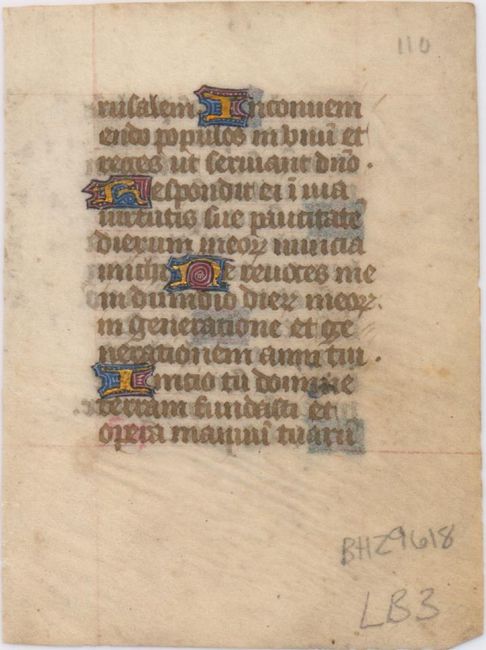 110
rusalem In conuem
endo populos in vnū et
reges ut seruiant dn̄o.
Respondit ei ī uia
uirtutis sue paucitatē
dierum meoꝝ nuncia
michi Ne reuoces me
in dimidio dieꝝ meoꝝ.
in generatione et ge
nerationem anni tui.
Initio tu domine
terram fundasti et
opera manuū tuarū
BHZ9618
LB3